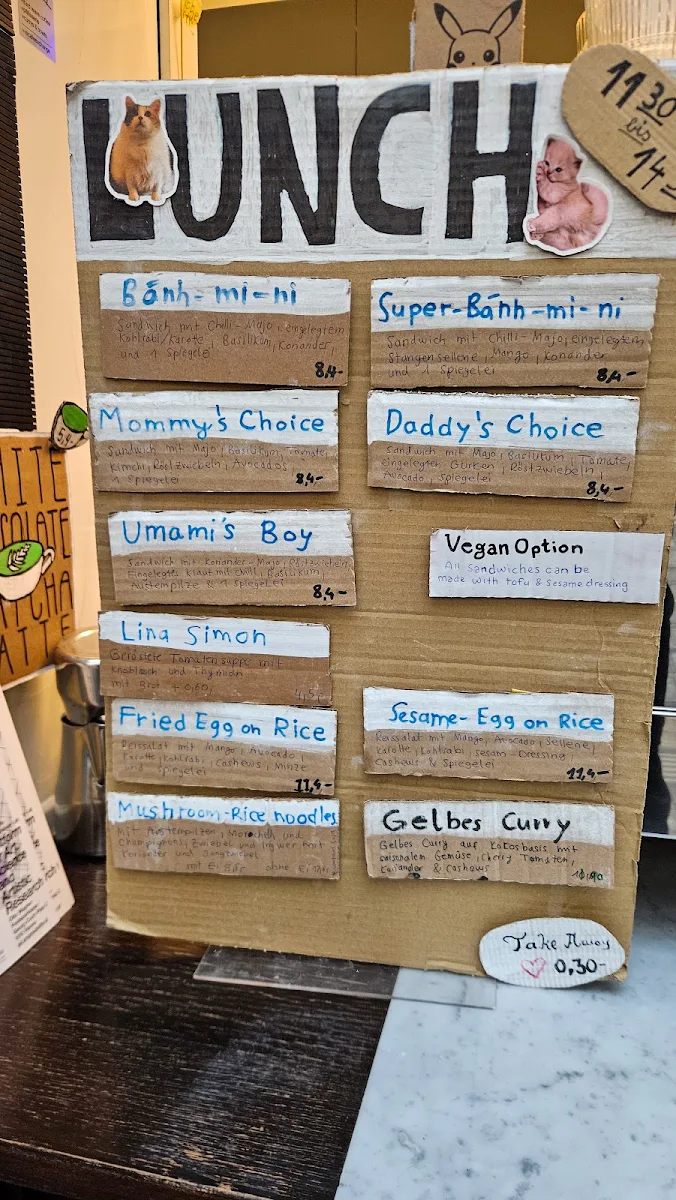 LUNCH
11 30
bis
14 -
Bánh-mi-ni
Sandwich mit Chilli-Majo, eingelegtem
Kohlrabi/Karotte, Basilikum, Koriander,
und 1 Spiegelei
8,4-
Super-Bánh-mi-ni
Sandwich mit Chilli-Majo, eingelegtem
Stangensellerie, Mango, Koriander
und 1 Spiegelei
8,4-
Mommy's Choice
Sandwich mit Majo, Basilikum, Tomate,
Kimchi, Röstzwiebeln, Avocados
1 Spiegelei
8,4-
Daddy's Choice
Sandwich mit Majo, Basilikum, Tomate,
eingelegten Gurken, Röstzwiebeln,
Avocado, Spiegelei
8,4-
Umami's Boy
Sandwich mit Koriander-Majo, Röstzwiebeln
Eingelegtes Kraut mit Chilli, Basilikum,
Austernpilze & 1 Spiegelei
8,4-
Vegan Option
All sandwiches can be
made with tofu & sesame dressing
Lina Simon
Geröstete Tomatensuppe mit
Knoblauch und Thymian
mit Brot + 0,60,-
Fried Egg on Rice
Reissalat mit Mango, Avocado,
Karotte, Kohlrabi, Cashews, Minze
und Spiegelei
11,4-
Sesame-Egg on Rice
Reissalat mit Mango, Avocado, Sellerie,
Karotte, Kohlrabi, Sesam-Dressing,
Cashews & Spiegelei
11,4-
Mushroom-Rice noodles
Mit Austernpilzen, Morcheln und
Champignons, Zwiebel und Ingwer mit
Koriander und
mit Ei ohne Ei
Gelbes Curry
Gelbes Curry auf Kokosbasis mit
saisonalem Gemüse, Cherry Tomaten,
Koriander & Cashews
Take Away
0,30-
5,4
Research